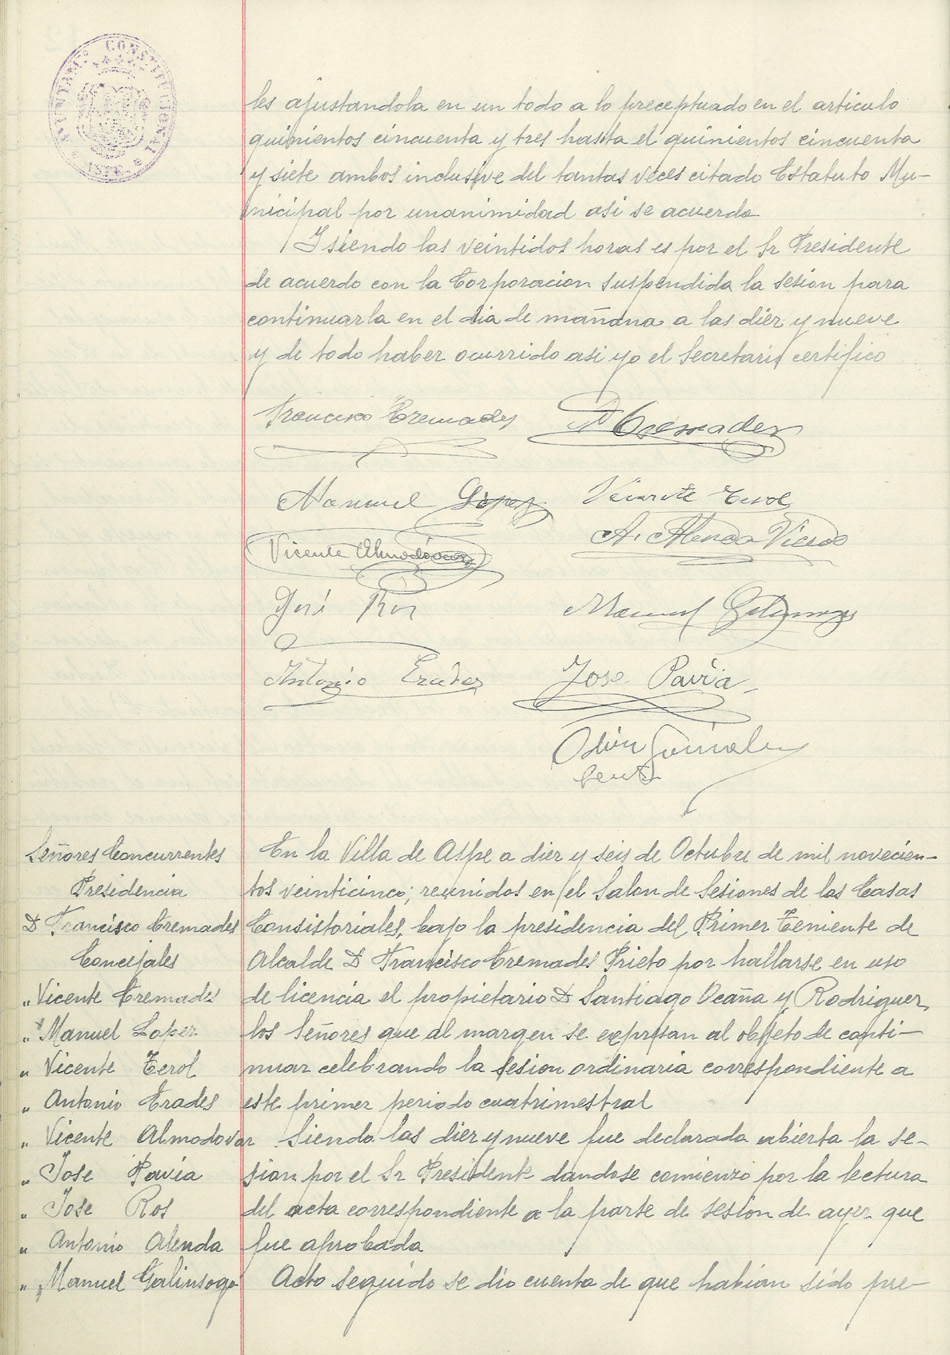 AYUNTAMTO CONSTITUCIONAL
ASPE
les ajustandola en un todo a lo preceptuado en el articulo
quinientos cincuenta y tres hasta el quinientos cincuenta
y siete ambos inclusive del tantas veces citado Estatuto Mu-
nicipal por unanimidad asi se acuerda
Y siendo las veintidos horas es por el Sr Presidente
de acuerdo con la Corporacion suspendida la sesion para
continuarla en el dia de mañana a las diez y nueve
y de todo haber ocurrido asi yo el Secretario certifico
Francisco Cremades
V Cremades
Manuel López
Vicente Terol
Vicente Almodóvar
A. Alenda
José Ros
Manuel Galinsoga
Antonio Erades
Jose Pavia
Odón González
Señores Concurrentes
Presidencia
D Francisco Cremades
Concejales
" Vicente Cremades
" Manuel Lopez
" Vicente Terol
" Antonio Erades
" Vicente Almodovar
" Jose Pavia
" Jose Ros
" Antonio Alenda
" Manuel Galinsoga
En la Villa de Aspe a diez y seis de Octubre de mil novecien-
tos veinticinco; reunidos en el Salon de Sesiones de las Casas
Consistoriales, bajo la presidencia del Primer Teniente de
Alcalde D Francisco Cremades Prieto por hallarse en uso
de licencia el propietario D Santiago Ocaña y Rodriguez,
los Señores que al margen se expresan al objeto de conti-
nuar celebrando la sesion ordinaria correspondiente a
este primer periodo cuatrimestral
Siendo las diez y nueve fue declarada abierta la se-
sion por el Sr Presidente dandose comienzo por la lectura
del acta correspondiente a la parte de sesion de ayer que
fue aprobada
Acto seguido se dio cuenta de que habian sido pre-